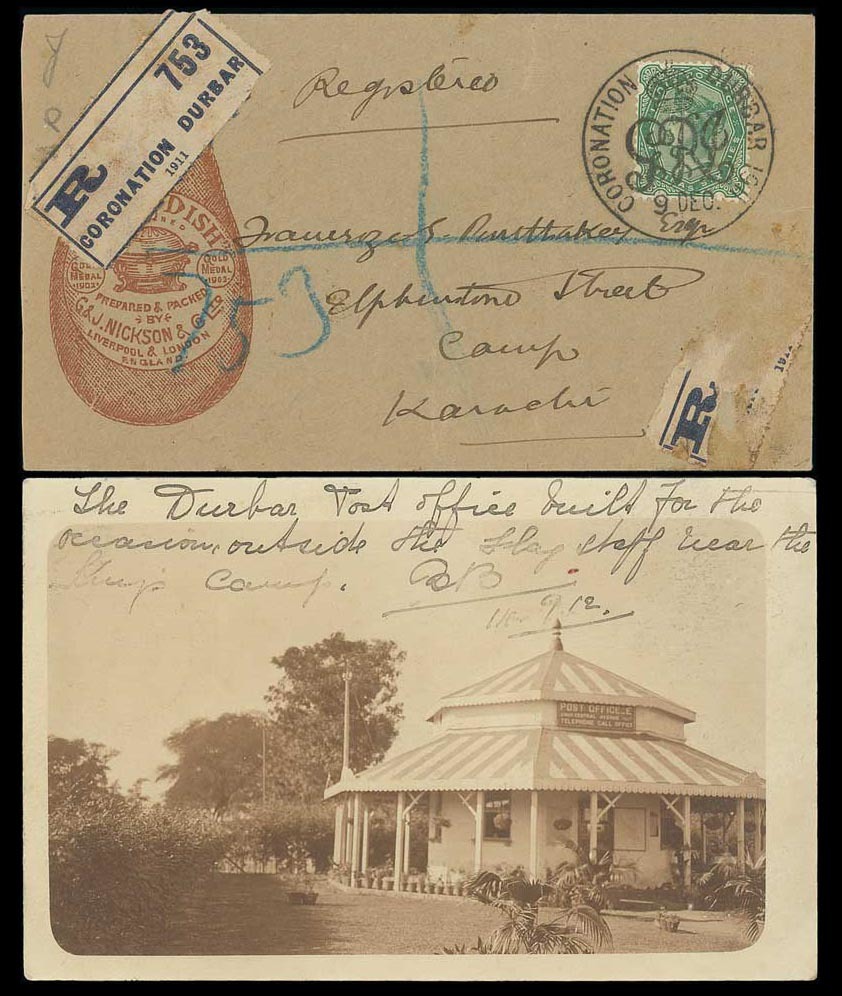 R
753
CORONATION DURBAR
1911
Registered
CORONATION DURBAR 1911
9 DEC.
DISH
GOLD MEDAL 1903
GOLD MEDAL 1903
PREPARED & PACKED
BY
G & J. NICKSON & Co LTD
LIVERPOOL & LONDON
ENGLAND
753
Esqr
Elphinstone Street
Camp
Karachi
R
191
The Durbar Post office built for the
occasion, outside the flag staff near the
King's Camp.
9.12.
POST OFFICE
CENTRAL AVENUE
TELEPHONE CALL OFFICE